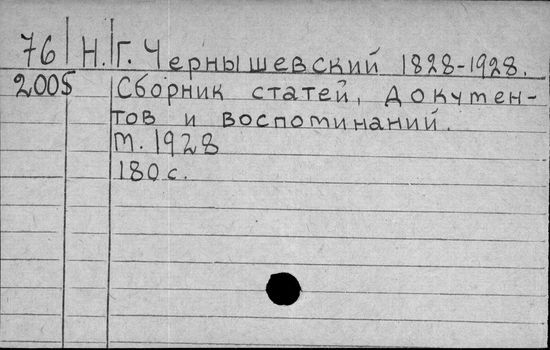 76 Н. Г. Чернышевский 1828-1928.
2005 Сборник статей, докумен-
тов и воспоминаний.
М. 1928
180 с.